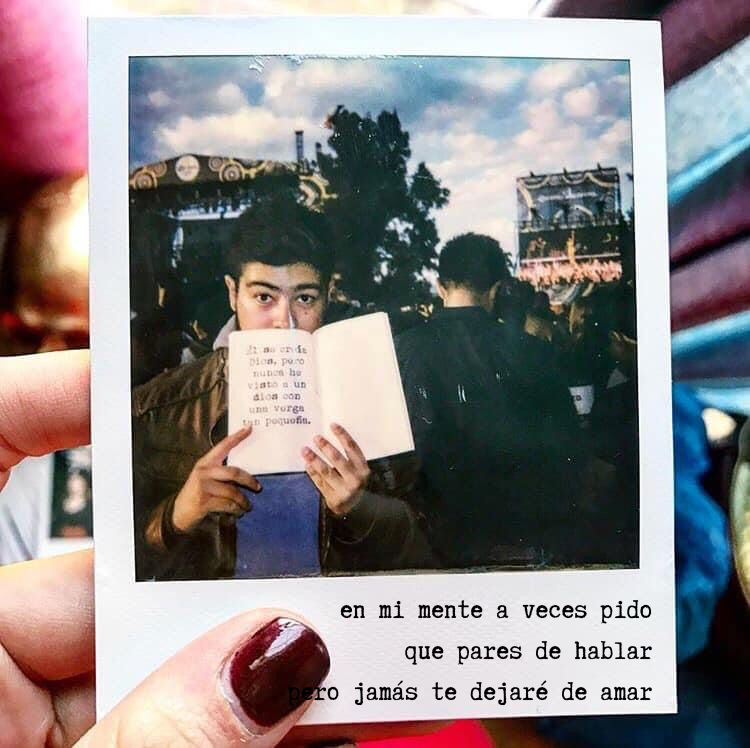 Él se creía
Dios, pero
nunca he
visto a un
dios con
una verga
tan pequeña.
en mi mente a veces pido
que pares de hablar
pero jamás te dejaré de amar